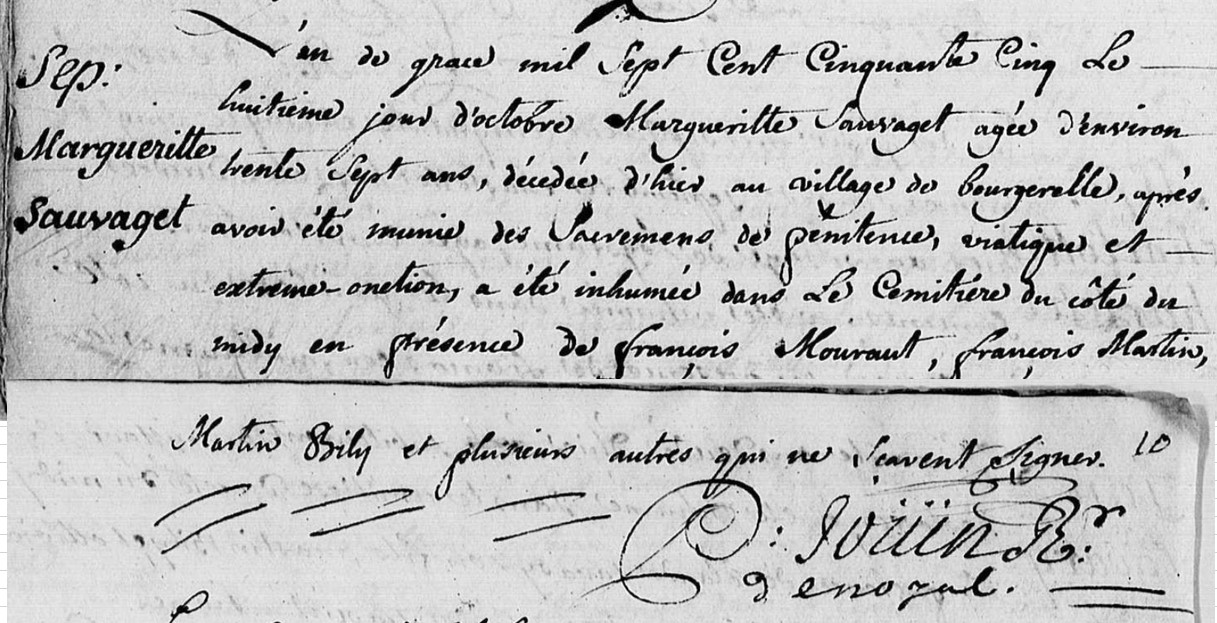 Sep:
Margueritte
Sauvaget
L'an de grace mil Sept Cent Cinquante Cinq Le
huitième jour d'octobre Margueritte Sauvaget agée d'environ
trente Sept ans, décedée d'hier au village de bourgerelle, après
avoir été munie des Sacremens de pénitence, viatique et
extreme-onction, a été inhumée dans Le Cemitiére du côté du
midy en présence de françois Mouraut, françois Martin,
Martin Bily et plusieurs autres qui ne Scavent Signer. 10
P: Joüin Rr:
denozal.